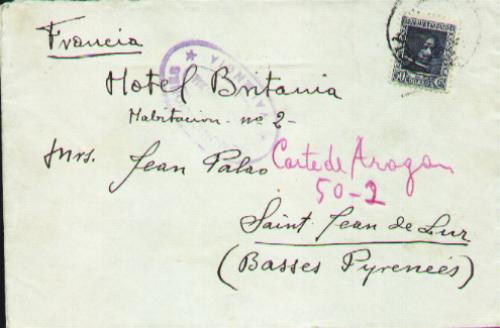 Francia
Hotel Britania
Habitacion - nº 2 -
Mrs. Jean Palao
Corte de Aragon
50-2
Saint Jean de Luz
(Basses Pyreneés)